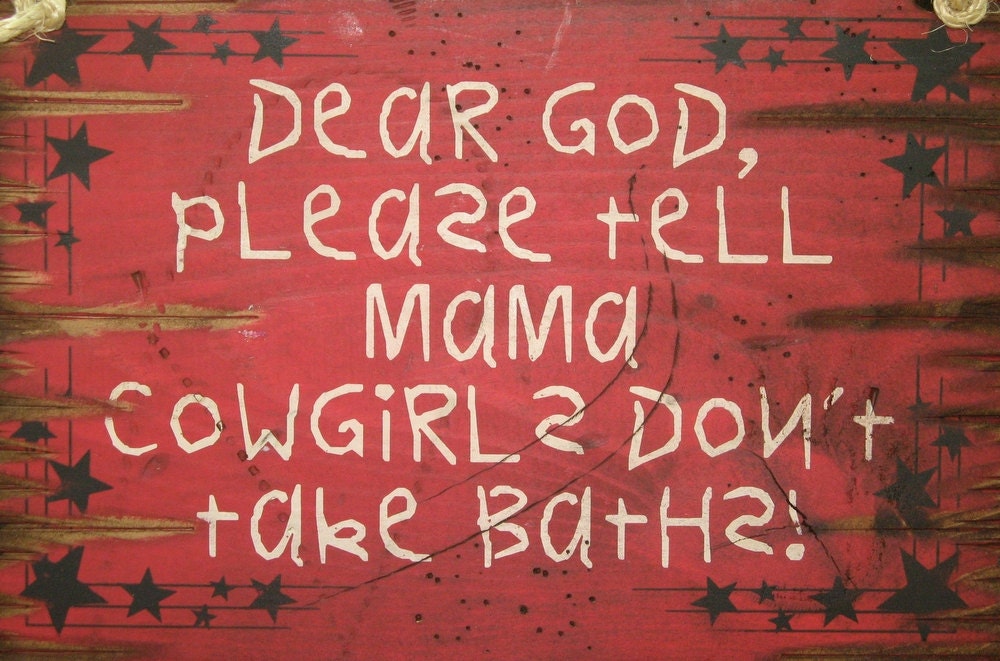 Dear God,
please tell
Mama
Cowgirls Don't
take Baths!